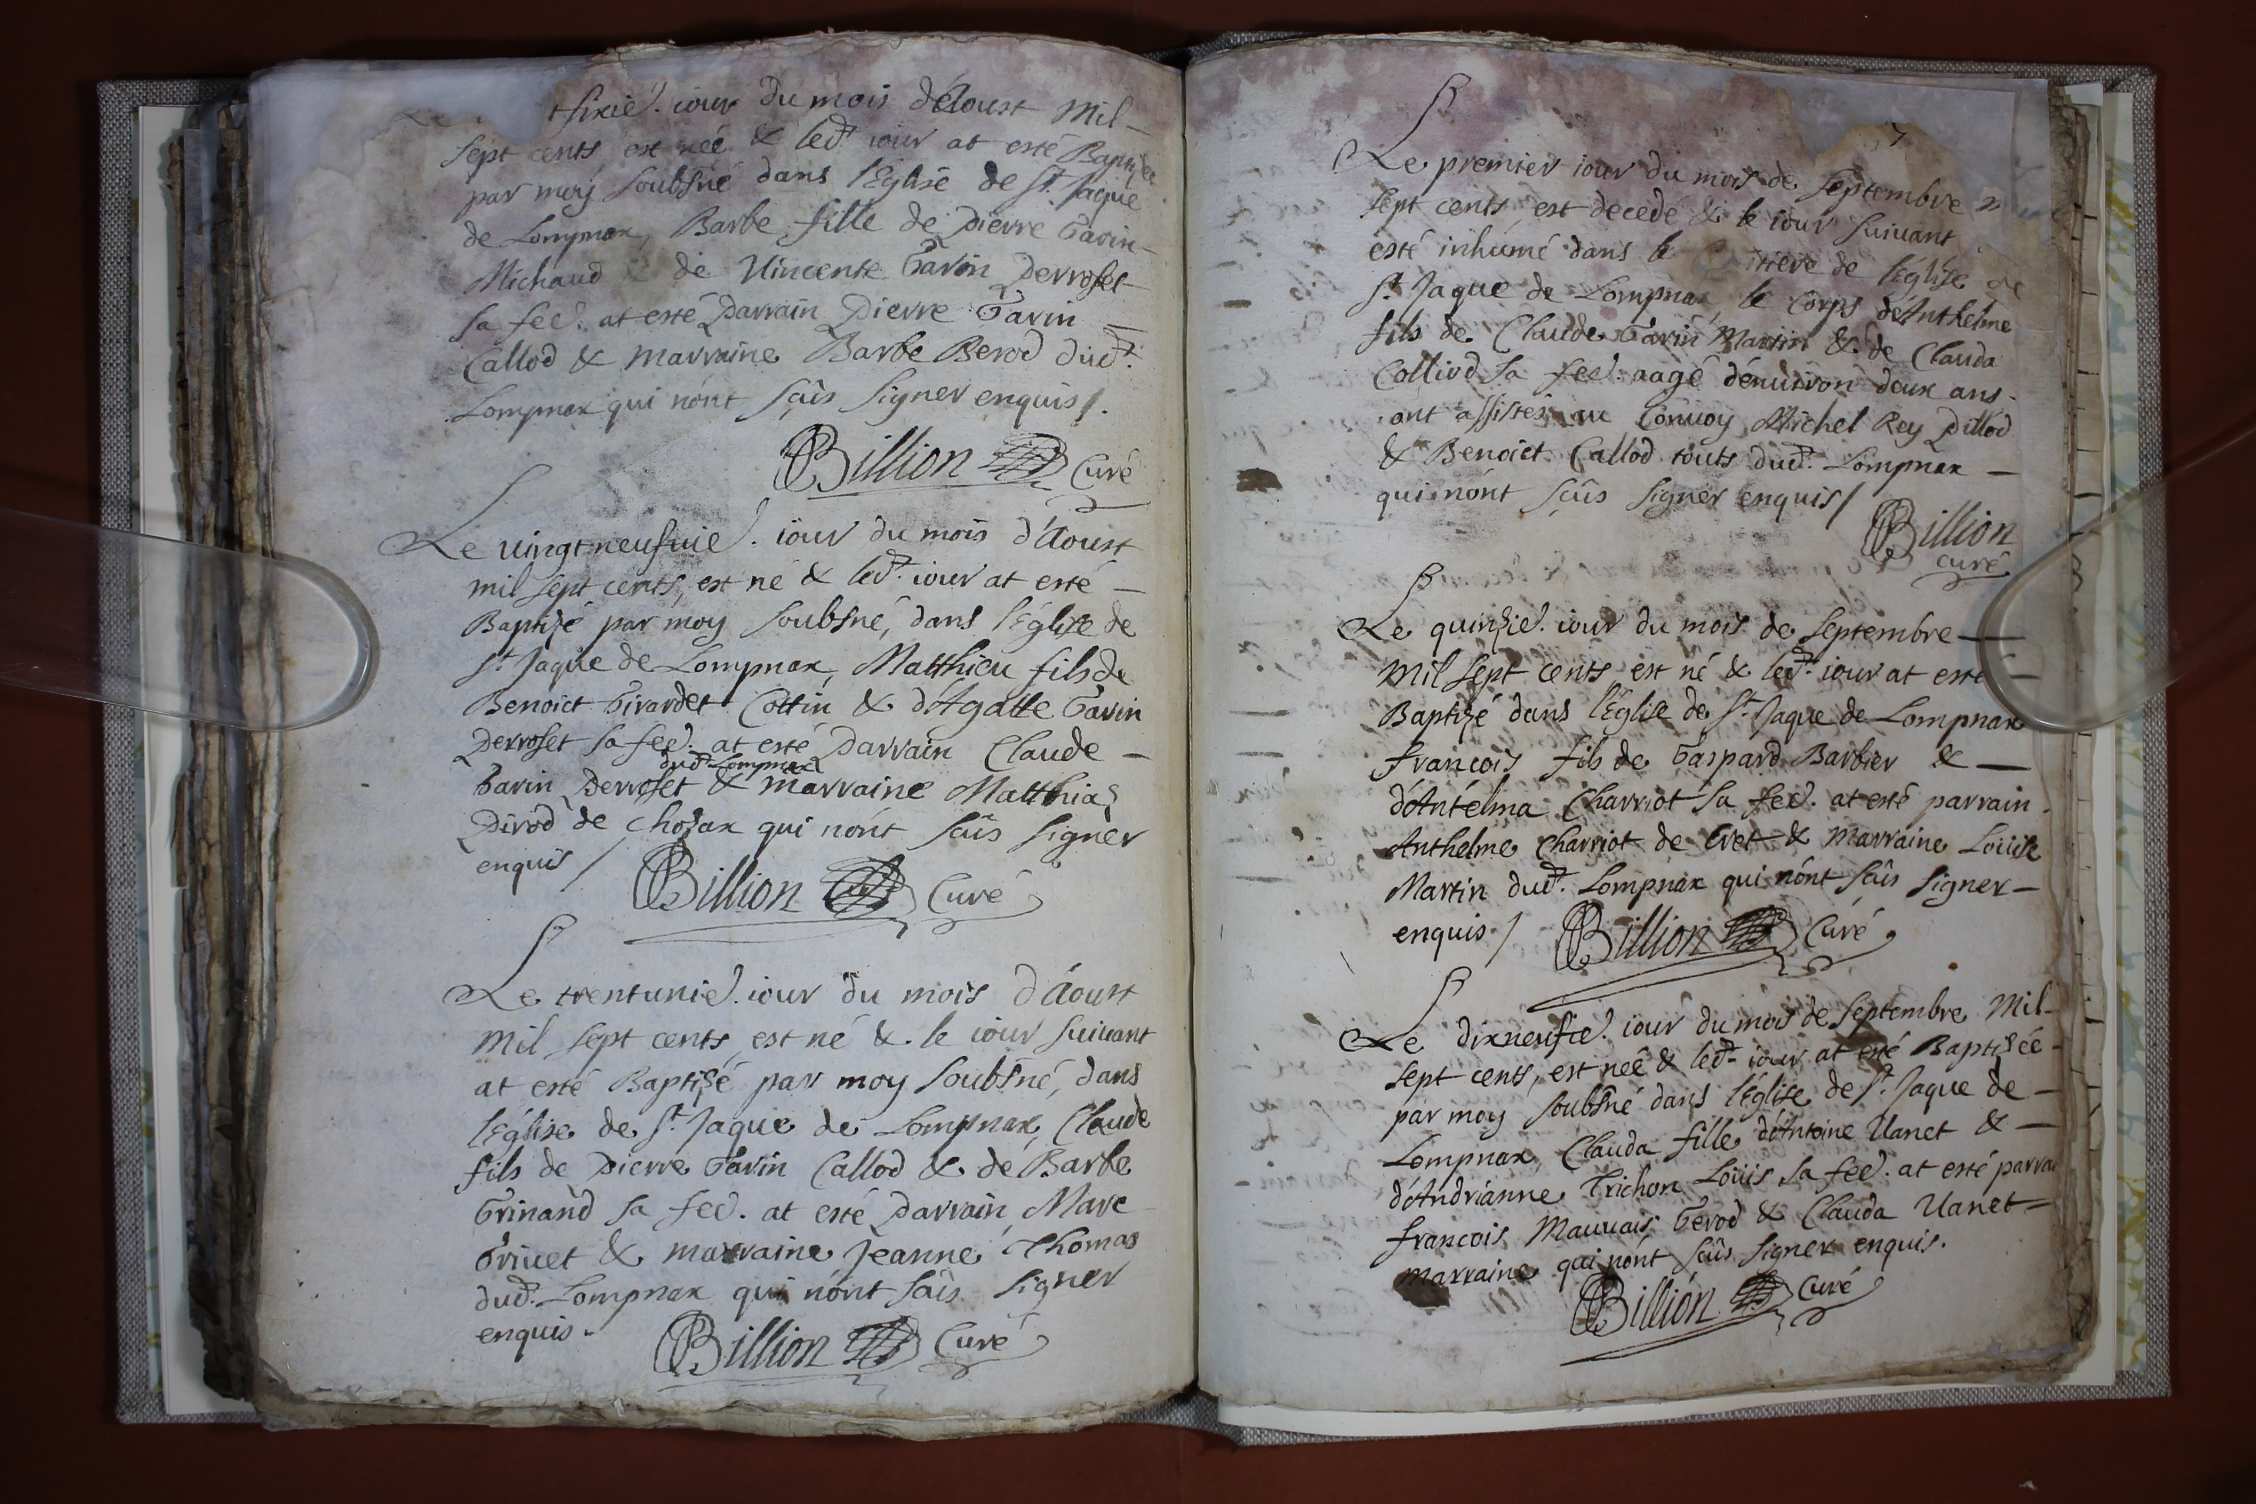 Le t sixie. iour du mois d'Aoust mil
sept cents est née & led.t iour at esté Baptizée
par moy soubsne dans l'Eglise de S.t Jaque
de Lompnax, Barbe fille de Pierre Garin
Michaud de Vincente Garin Perroset
sa fee. at esté Parrain Pierre Garin
Callod & marraine Barbe Berod dud.t
Lompnax qui n'ont sçûs signer enquis /.
Billion Curé
Le vingtneufuie. iour du mois d'Aoust
mil sept cents, est né & led.t iour at esté
Baptizé par moy soubsné, dans l'Eglise de
S.t Jaque de Lompnax, Matthieu fils de
Benoict Girardet Cottin & d'Agatte Garin
Perroset sa fee. at esté Parrain Claude
dud.t Lompnax
Garin Perroset & marraine Matthia
Pirod de Chozax qui n'ont sçûs signer
enquis /
Billion Curé
Le trentunie. iour du mois d'Aoust
mil sept cents, est né & le iour suiuant
at esté Baptizé par moy soubsné, dans
l'Eglise de S.t Jaque de Lompnax, Claude
fils de Pierre Garin Callod & de Barbe
Grinand sa fee. at esté Parrain Marc
Griuet & marraine Jeanne Thomas
dud.t Lompnax qui n'ont sçûs signer
enquis.
Billion Curé
7
Le premier iour du mois de septembre
sept cents, est decedé & le iour suiuant
esté inhumé dans le de l'Eglise de
S.t Jaque de Lompnax, le corps d'Anthelme
fils de Claude Garin Martin & de Clauda
Colliod sa fee. aagé d'enuiron deux ans.
ont assistés au conuoy Michel Rey Pillod
& Benoict Callod touts dud.t Lompnax
qui n'ont sçûs signer enquis /
Billion
curé
Le quinzie. iour du mois de septembre
mil sept cents, est né & led.t iour at esté
Baptizé dans l'Eglise de S.t Jaque de Lompnax
francois fils de Gaspard Barbier &
d'Antelma Charriot sa fee. at esté parrain
Anthelme Charriot de Euet & marraine Louise
Martin dud.t Lompnax qui n'ont sçûs signer
enquis /
Billion Curé
Le dixneufie. iour du mois de septembre mil
sept cents, est née & led.t iour at esté Baptizée
par moy soubsné dans l'Eglise de S.t Jaque de
Lompnax, Clauda fille d'Antoine Vanet &
d'Andrianne Trichon Louis sa fee. at esté parrai
francois Mauuais Gerod & Clauda Vanet
marraine qui n'ont sçûs signer enquis.
Billion Curé